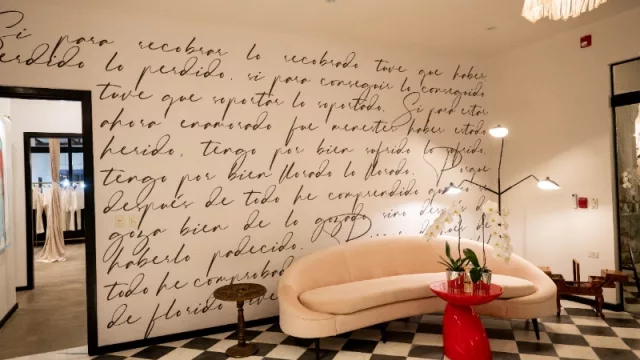 Si para recobrar lo recobrado tuve que haber
perdido lo perdido, si para conseguir lo conseguido
tuve que soportar lo soportado. Si para estar
ahora enamorado fue menester haber estado
herido, tengo por bien sufrido lo sufrido,
tengo por bien llorado lo llorado. Porque
después de todo he comprendido que no se
goza bien de lo gozado sino después de
haberlo padecido. D de
todo he comprobado
de florido